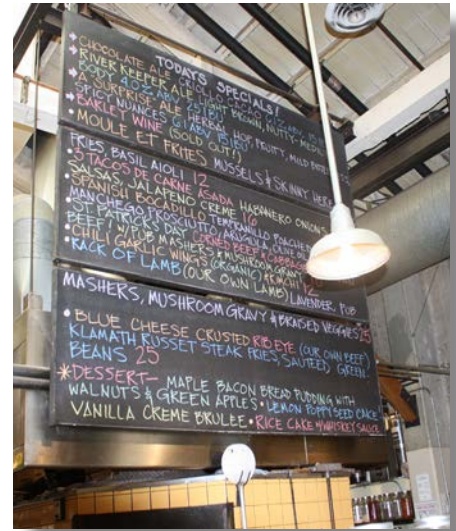 TODAYS SPECIALS!
CHOCOLATE ALE CRIOLLO CACAO 6.2% ABV 15 IBU
RIVER KEEPER ALE LIGHT BROWN, NUTTY-MEDIUM
BODY 4.0% ABV 25 IBU
A SURPRISE ALE HERBAL HOP, FRUITY, MILD BITTER
SPICY NUANCES 6.1 ABV 15 IBU
BARLEY WINE (SOLD OUT!)
• MOULE ET FRITES MUSSELS & SKINNY HERB
FRIES, BASIL AIOLI 12
• 3 TACOS DE CARNE ASADA HABANERO ONIONS
SALSAS, JALAPENO CREME 16
• SPANISH BOCADILLO TEMPRANILLO POACHED
MANCHEGO, PROSCIUTTO, ARUGULA, OLIVE OIL
• ST PATRICKS DAY CORNED BEEF & CABBAGE
BEEF W/PUB MASHERS & MUSHROOM GRAVY
• CHILI GARLIC WINGS (ORGANIC) KIMCHI 12
• RACK OF LAMB (OUR OWN LAMB) LAVENDER, PUB
MASHERS, MUSHROOM GRAVY & BRAISED VEGGIES 25
• BLUE CHEESE CRUSTED RIB EYE (OUR OWN BEEF)
KLAMATH RUSSET STEAK FRIES, SAUTEED GREEN
BEANS 25
*DESSERT- MAPLE BACON BREAD PUDDING WITH
WALNUTS & GREEN APPLES • LEMON POPPY SEED CAKE
VANILLA CREME BRULEE • RICE CAKE W/WHISKEY SAUCE